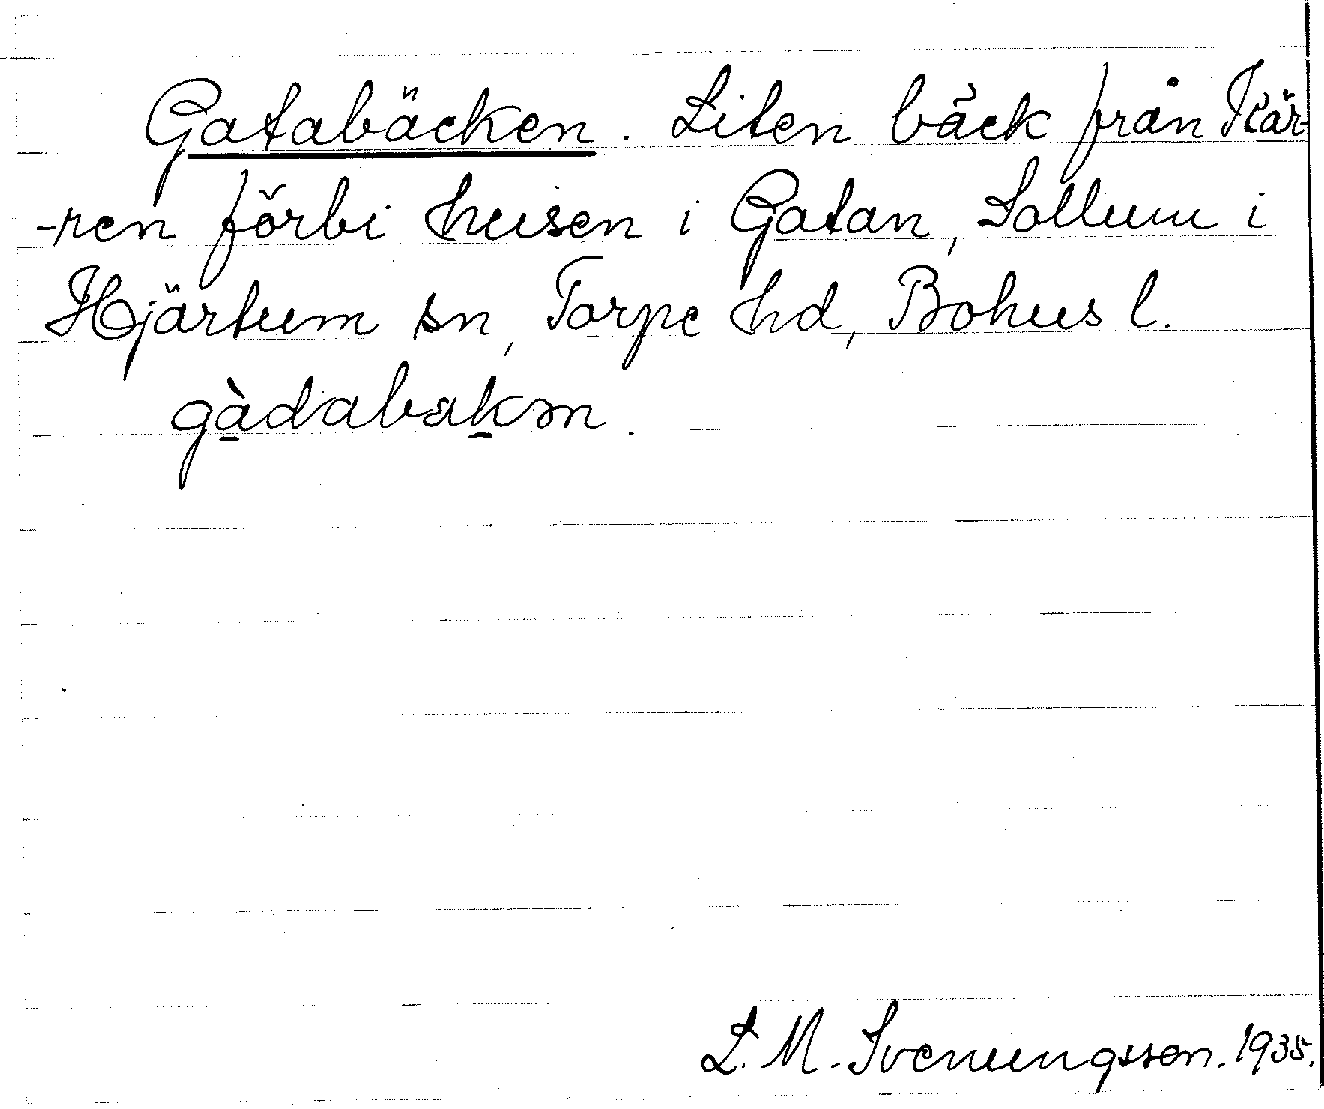 Gatabäcken. Liten bäck från Kär-
-ren förbi husen i Gatan, Sollum i
Hjärtum sn, Torpe hd, Bohus l.
gàdabakən.
L. M. Svenungsson. 1935.